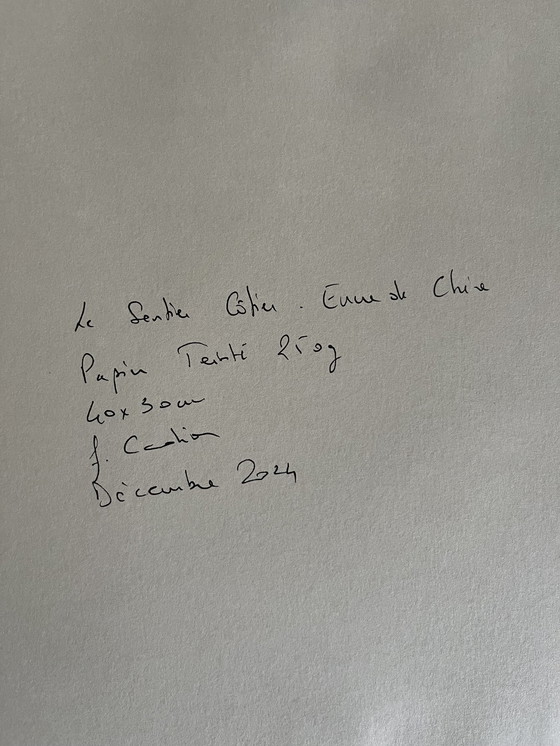 Le Sentier Côtier. Encre de Chine
Papier Teinté 250g
40x30cm
Décembre 2024